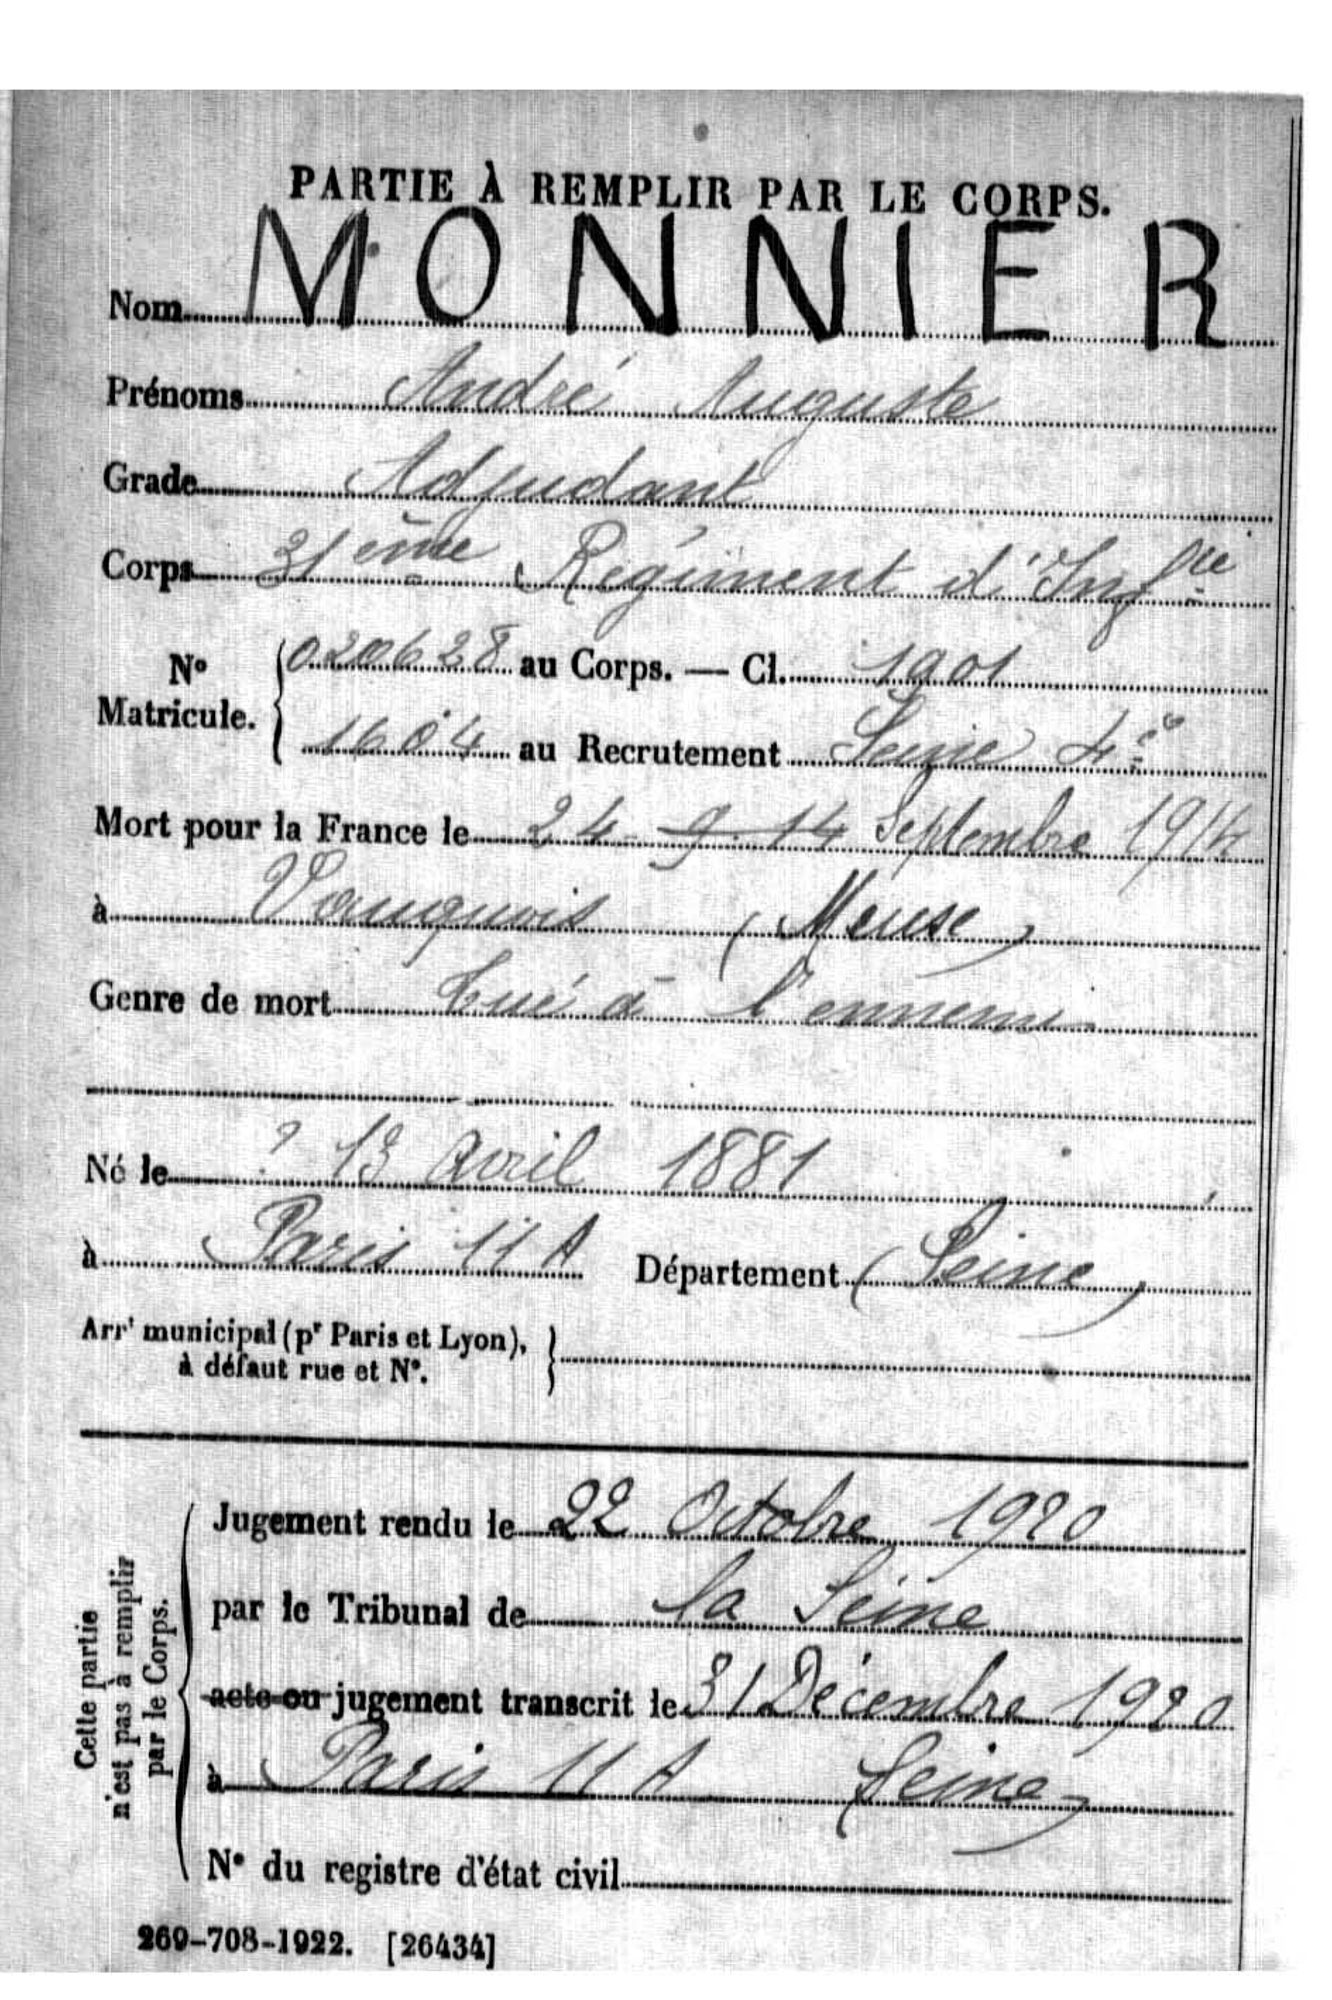 PARTIE À REMPLIR PAR LE CORPS.
Nom MONNIER
Prénoms André Auguste
Grade Adjudant
Corps 31ème Régiment d'Infrie
N° Matricule. { 020628 au Corps. — Cl. 1901
1604 au Recrutement Seine 4e
Mort pour la France le 24 9.14 Septembre 1914
à Vauquois (Meuse)
Genre de mort tué à l'ennemi
Né le ? 13 Avril 1881
à Paris 11 A Département (Seine)
Arrt municipal (pr Paris et Lyon),
à défaut rue et N°.
Cette partie
n'est pas à remplir
par le Corps.
Jugement rendu le 22 Octobre 1920
par le Tribunal de la Seine
acte ou jugement transcrit le 31 Décembre 1920
à Paris 11 A Seine
N° du registre d'état civil
269-708-1922. [26434]